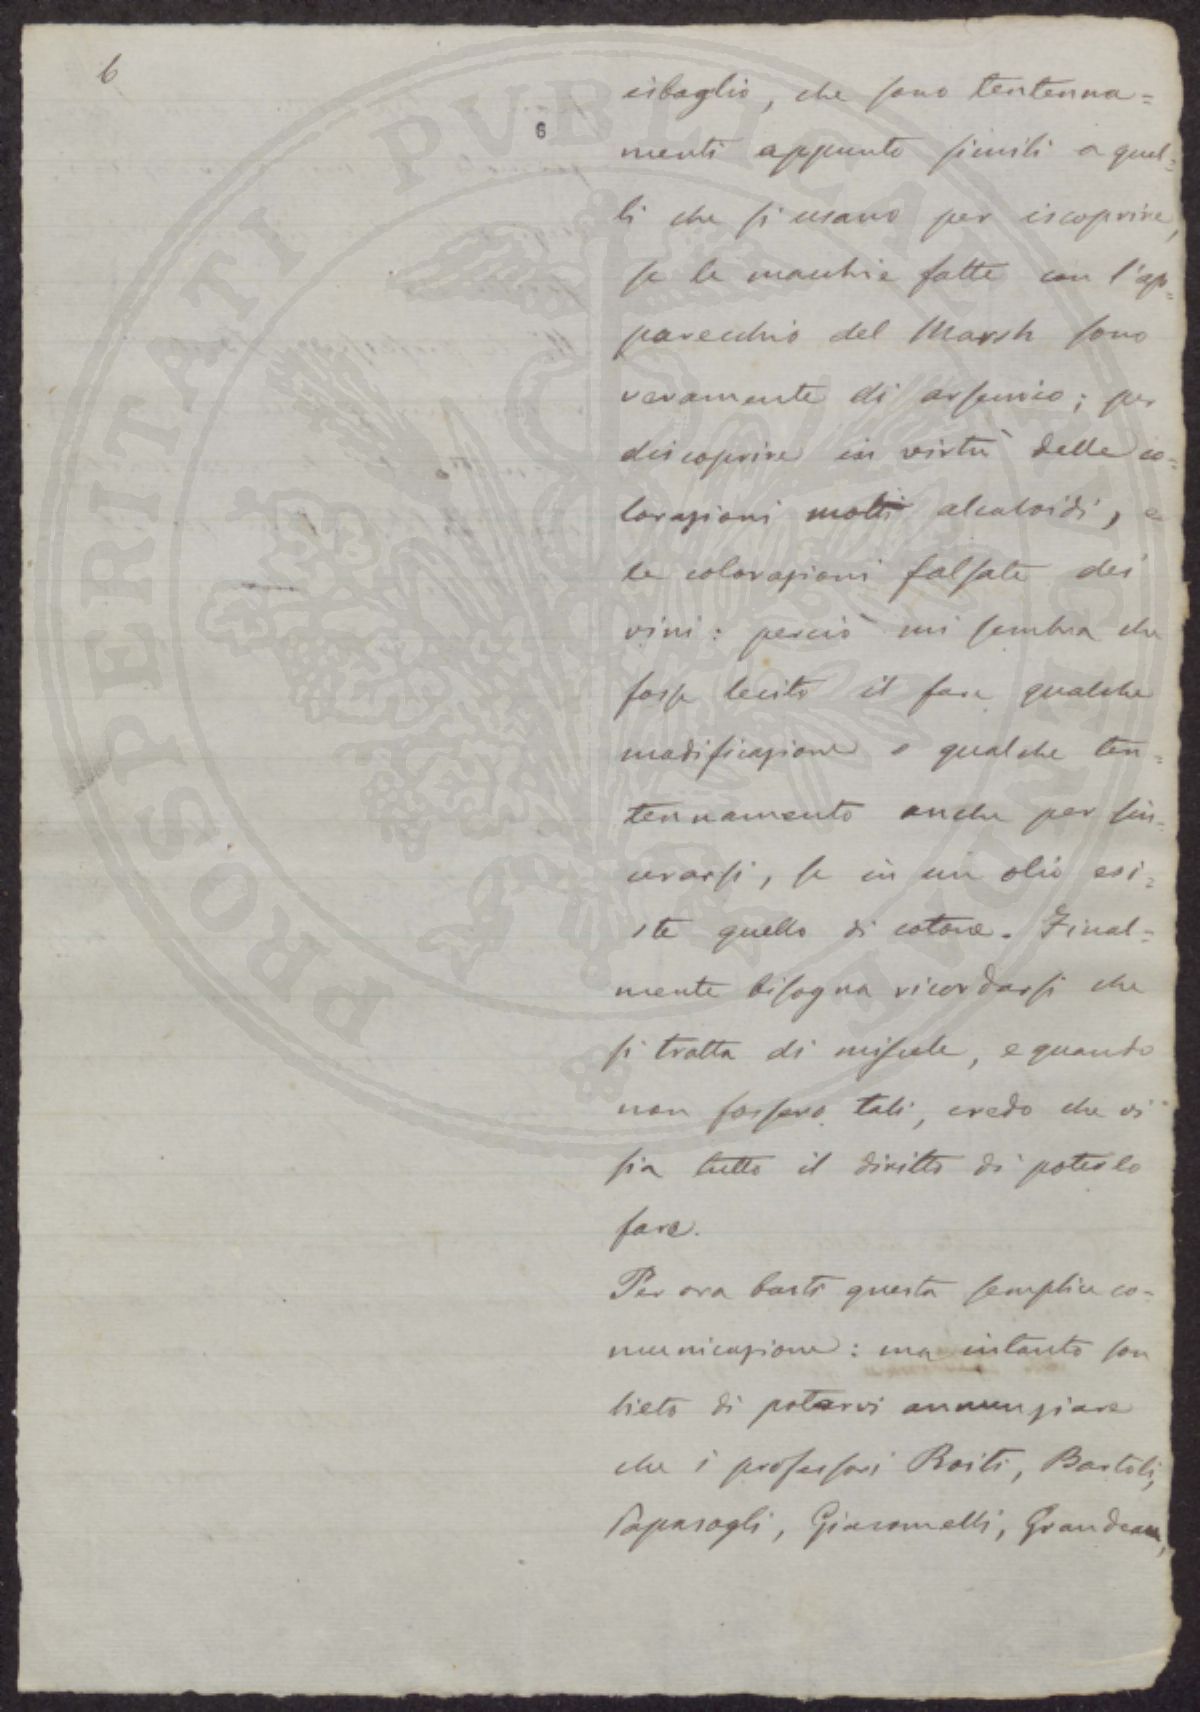 6
6
isbaglio, che sono tentenna=
menti appunto simili a quel=
li che si usano per iscoprire,
se le macchie fatte con l'ap=
parecchio del Marsh sono
veramente di arsenico; per
discoprire in virtù delle co=
lorazioni molti alcaloidi, e
le colorazioni falsate dei
vini: perciò mi sembra che
fosse lecito il fare qualche
modificazione o qualche ten=
tennamento anche per sin=
cerarsi, se in un olio esi=
ste quello di cotone. Final=
mente bisogna ricordarsi che
si tratta di miscele, e quando
non fossero tali, credo che vi
sia tutto il diritto di poterlo
fare.
Per ora basti questa semplice co=
municazione: ma intanto son
lieto di potervi annunziare
che i professori Roiti, Bartoli,
Papasogli, Giacomelli, Grandeau,
PROSPERITATI PUBLICAE AUGENDAE